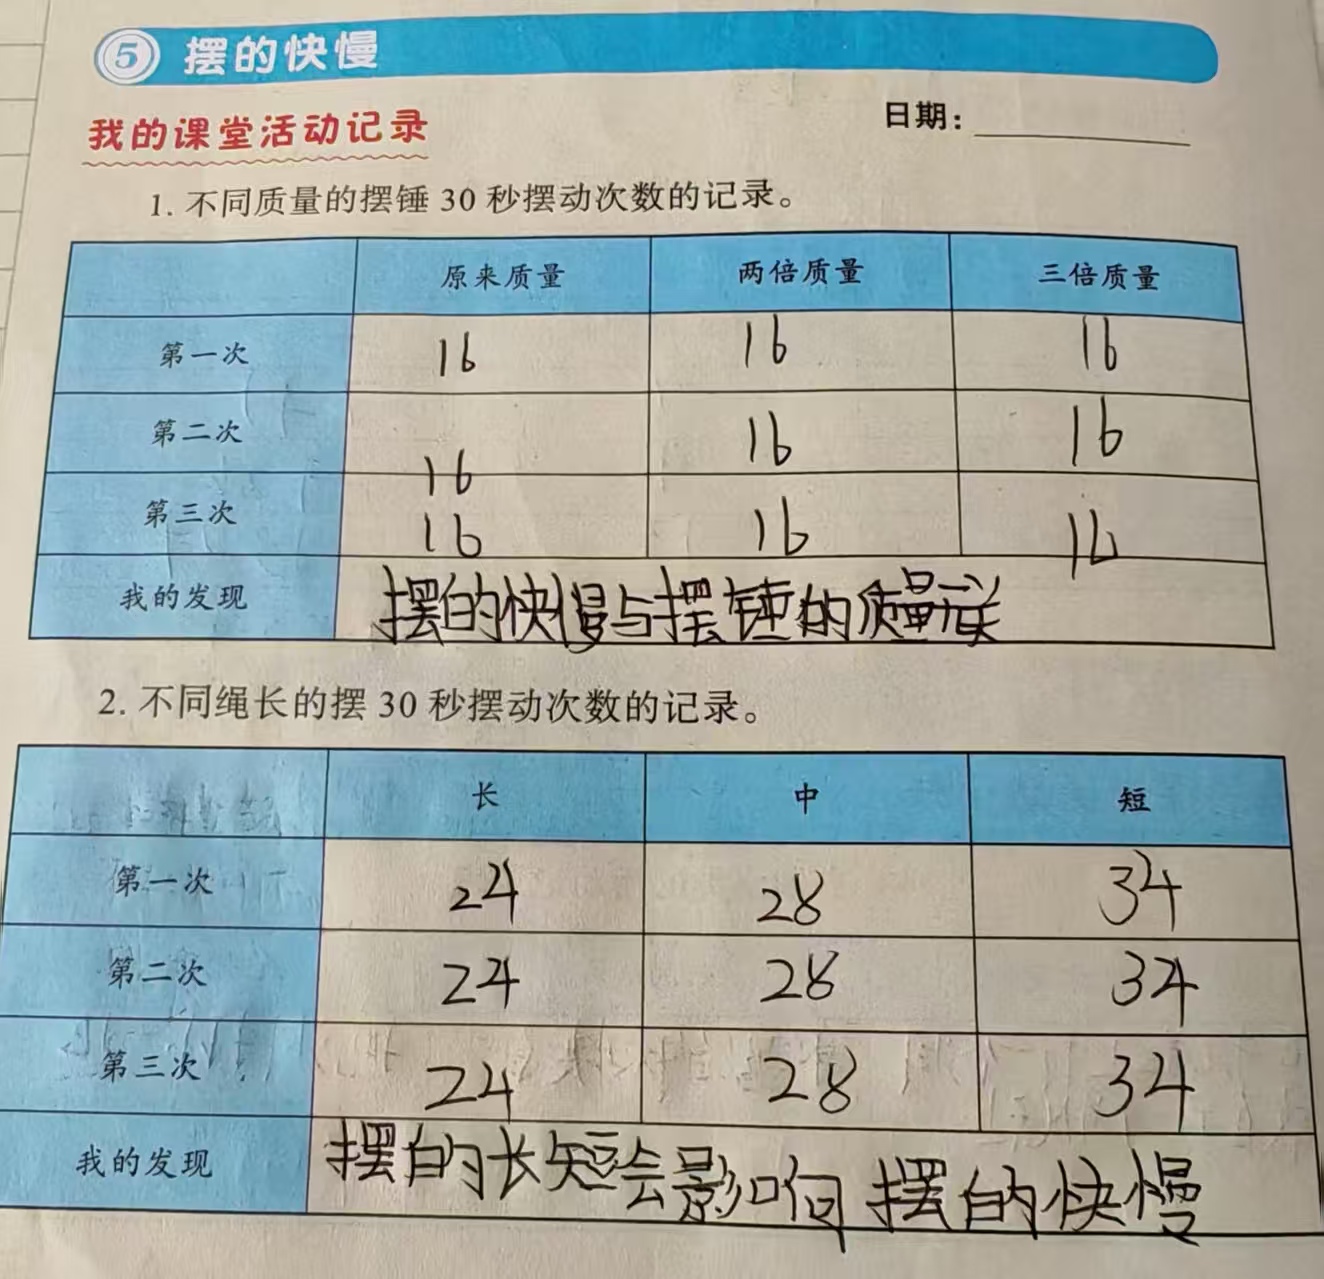 5 摆的快慢
我的课堂活动记录 日期：
1. 不同质量的摆锤 30 秒摆动次数的记录。
原来质量 两倍质量 三倍质量
第一次 16 16 16
第二次 16 16 16
第三次 16 16 16
我的发现 摆的快慢与摆锤的质量无关
2. 不同绳长的摆 30 秒摆动次数的记录。
长 中 短
第一次 24 28 34
第二次 24 28 34
第三次 24 28 34
我的发现 摆的长短会影响摆的快慢